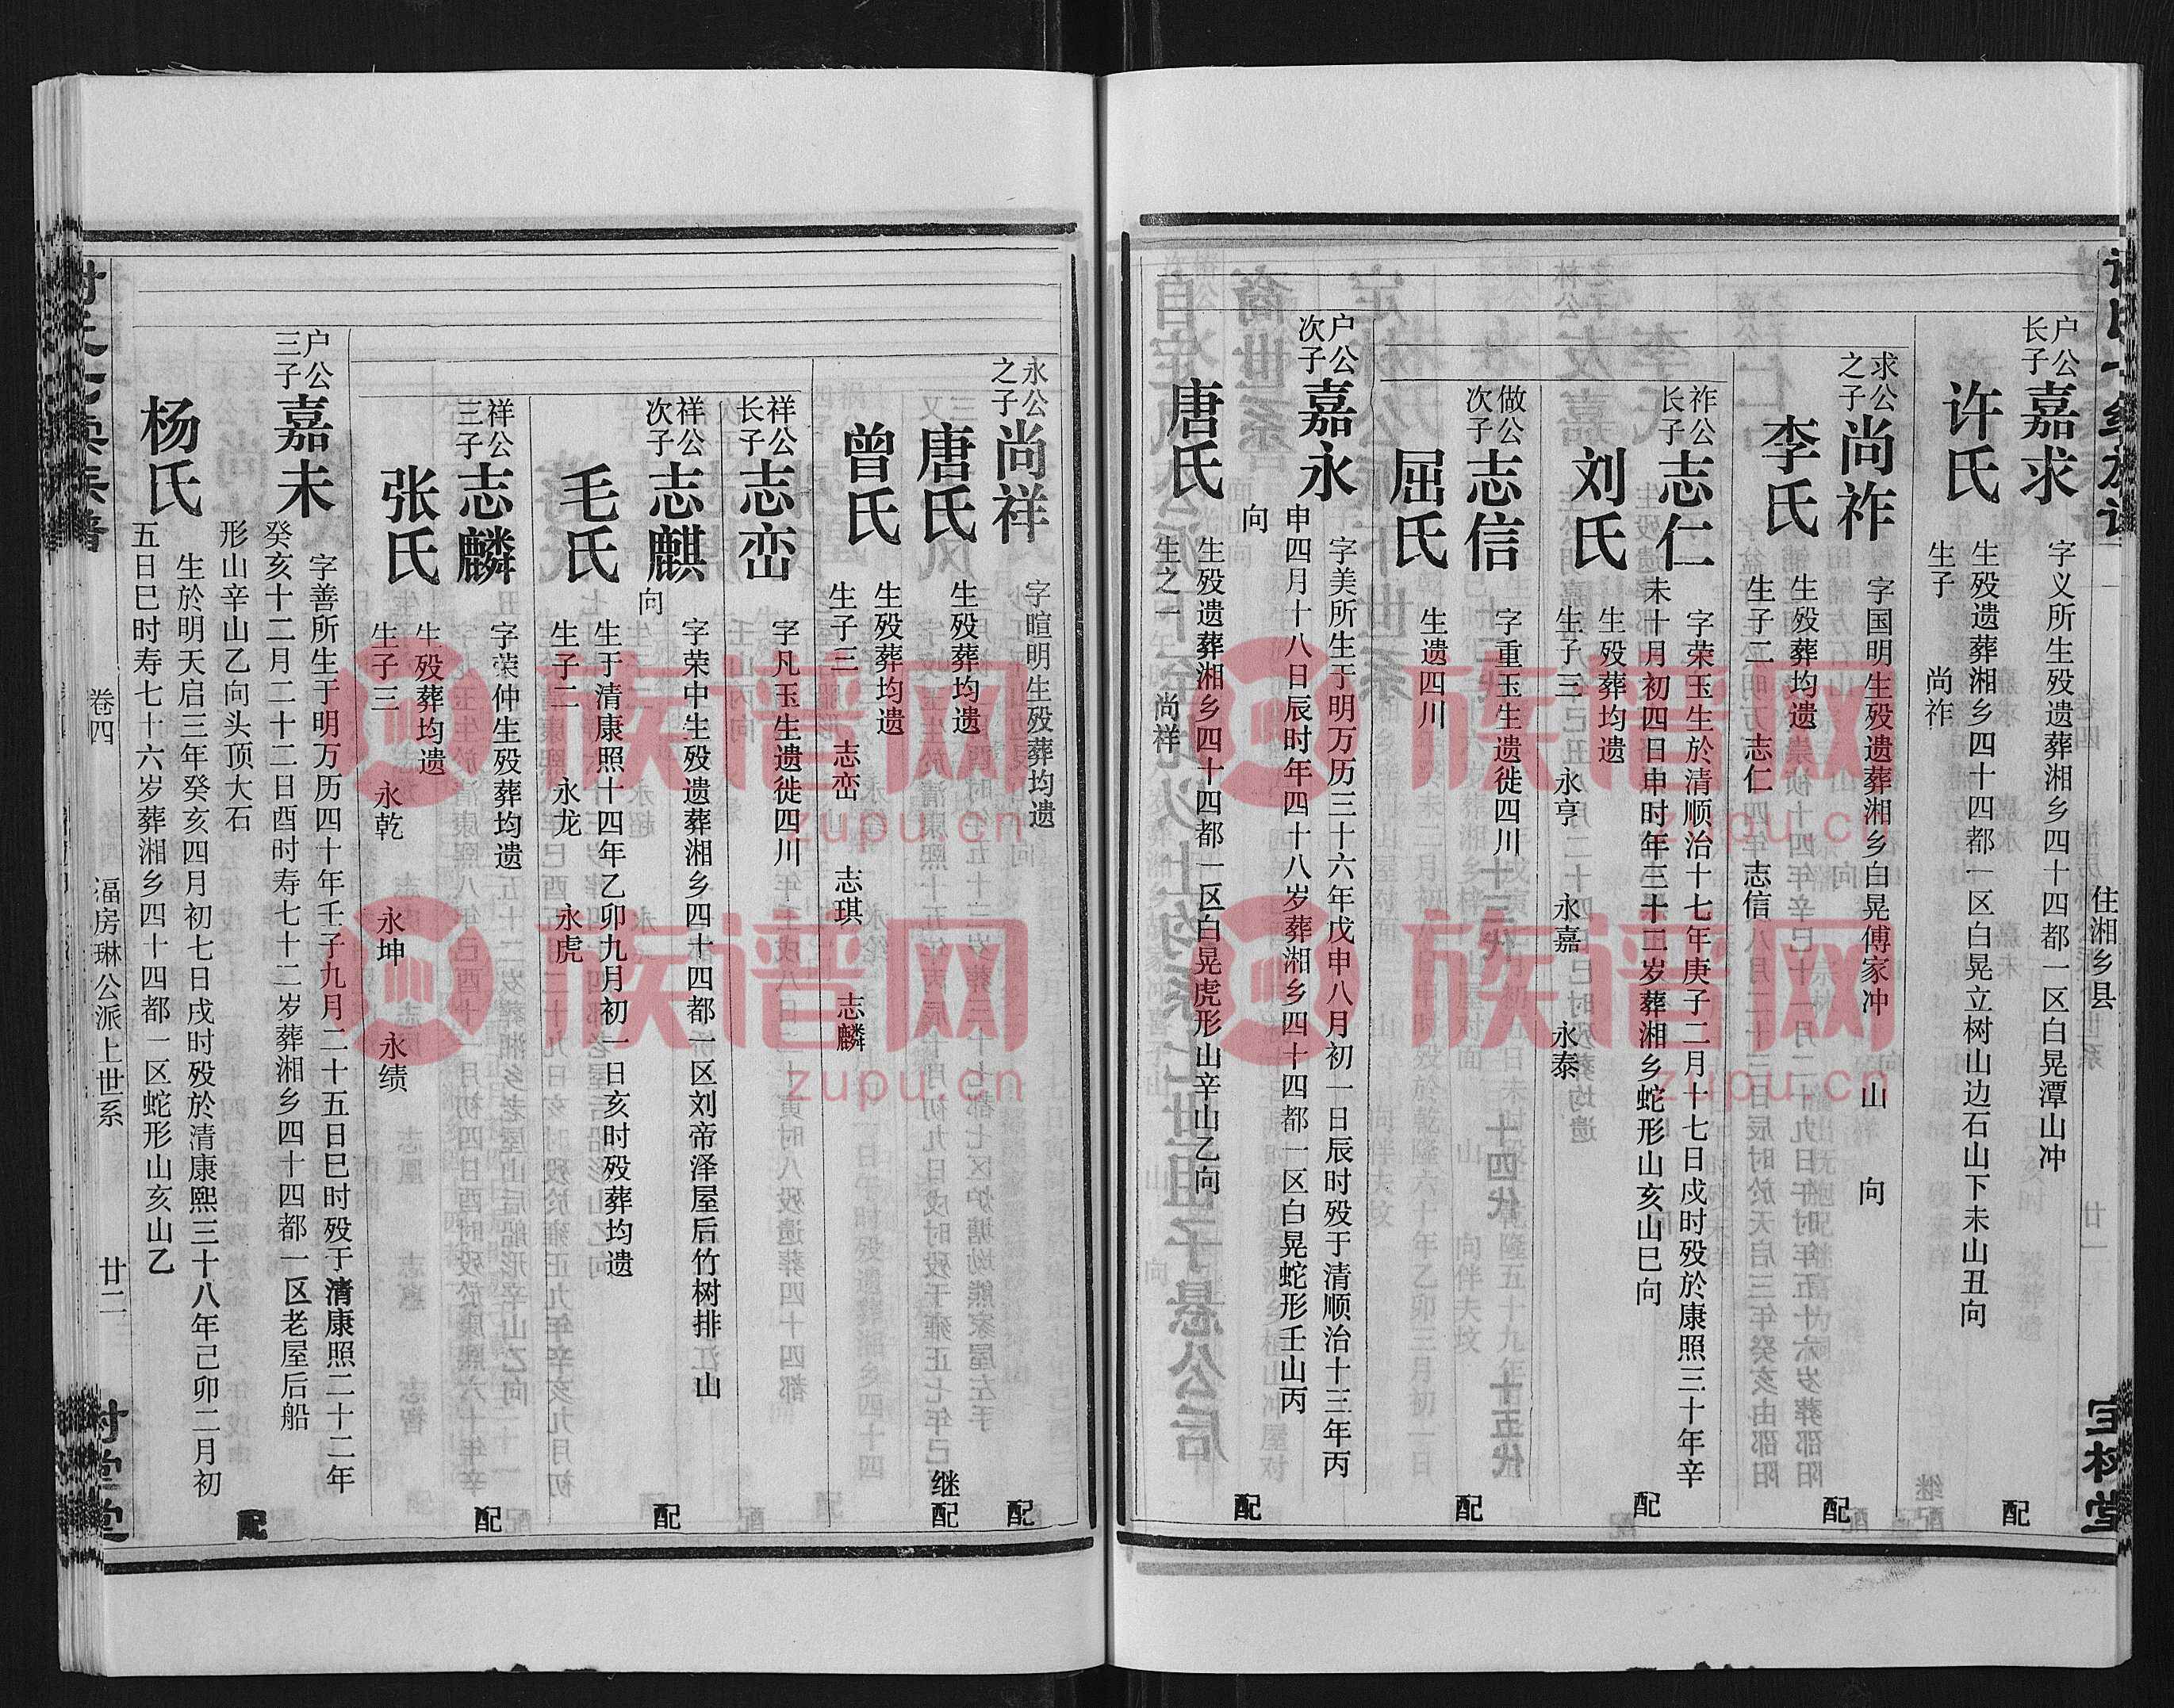 住湘乡县
户公
长子
嘉求
字义所生殁遗葬湘乡四十四都一区白晃潭山冲
配
许氏
生殁遗葬湘乡四十四都一区白晃立树山边石山下未山丑向
生子 尚祚
求公
之子
尚祚
字国明生殁遗葬湘乡白晃傅家冲 山 向
配
李氏
生殁葬均遗
生子二 志仁 志信
祚公
长子
志仁
字荣玉生於清顺治十七年庚子二月十七日戍时殁於康照三十年辛
未十月初四日申时年三十二岁葬湘乡蛇形山亥山巳向
配
刘氏
生殁葬均遗
生子三 永亨 永嘉 永泰
做公
次子
志信
字重玉生遗徙四川
配
屈氏
生遗四川
户公
次子
嘉永
字美所生于明万历三十六年戊申八月初一日辰时殁于清顺治十三年丙
申四月十八日辰时年四十八岁葬湘乡四十四都一区白晃蛇形壬山丙
向
配
唐氏
生殁遗葬湘乡四十四都一区白晃虎形山辛山乙向
生之一 尚祥
宝树堂
永公
之子
尚祥
字暄明生殁葬均遗
配
唐氏
生殁葬均遗
继配
曾氏
生殁葬均遗
生子三 志峦 志琪 志麟
祥公
长子
志峦
字凡玉生遗徙四川
祥公
次子
志麒
字荣中生殁遗葬湘乡四十四都一区刘帝泽屋后竹树排江山
向
配
毛氏
生于清康照十四年乙卯九月初一日亥时殁葬均遗
生子二 永龙 永虎
祥公
三子
志麟
字荣仲生殁葬均遗
配
张氏
生殁葬均遗
生子三 永乾 永坤 永绩
户公
三子
嘉未
字善所生于明万历四十年壬子九月二十五日巳时殁于清康照二十二年
癸亥十二月二十二日酉时寿七十二岁葬湘乡四十四都一区老屋后船
形山辛山乙向头顶大石
配
杨氏
生於明天启三年癸亥四月初七日戌时殁於清康熙三十八年己卯二月初
五日巳时寿七十六岁葬湘乡四十四都一区蛇形山亥山乙
卷四 湢房琳公派上世系 廿二
族谱网
zupu.cn
族谱网
zupu.cn
族谱网
zupu.cn
族谱网
zupu.cn